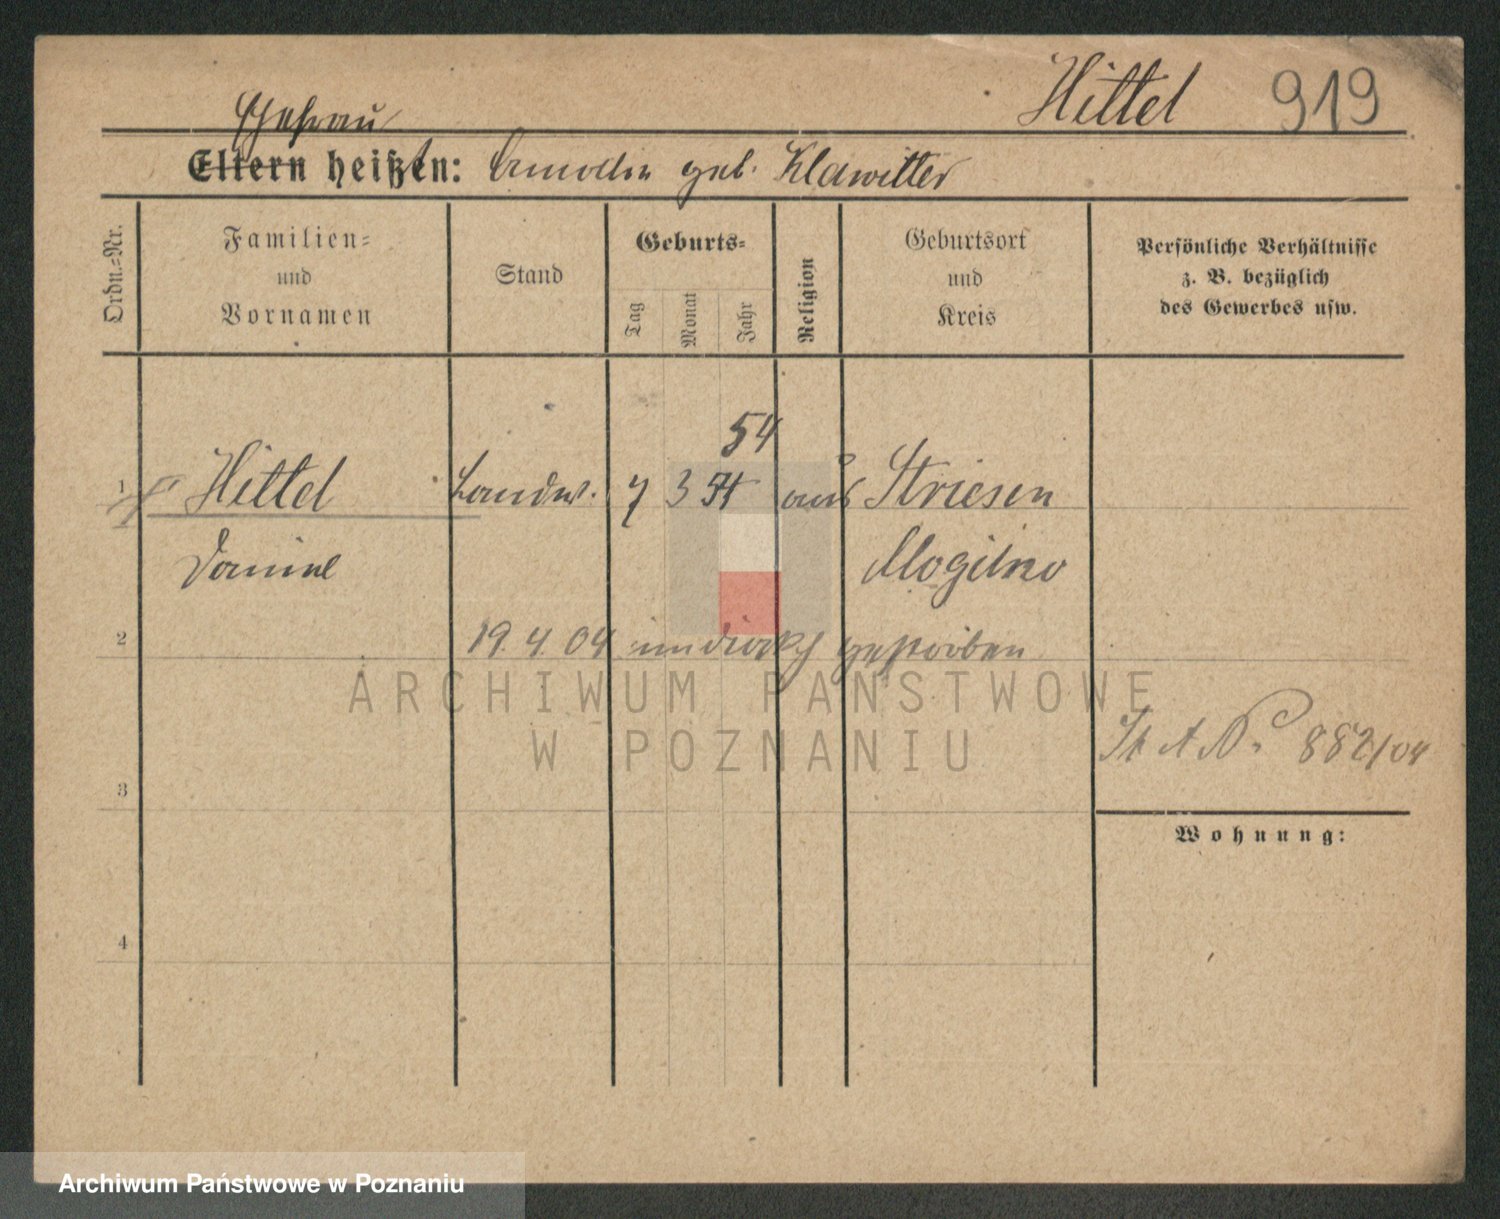 Hittel 919
Ehefrau
Eltern heißt:en: geb. Klawitter
Ordn.-Nr.
Familien-
und
Vornamen
Stand
Geburts-
Tag
Monat
Jahr
Religion
Geburtsort
und
Kreis
Persönliche Verhältnisse
z. B. bezüglich
des Gewerbes usw.
54
1 Hittel Landw. 7 3 54 aus Striesen
Daniel Mogilno
2
19. 4. 04 gestorben
ARCHIWUM PAŃSTWOWE
W POZNANIU
St A Nr 882/04
3
Wohnung:
4
Archiwum Państwowe w Poznaniu